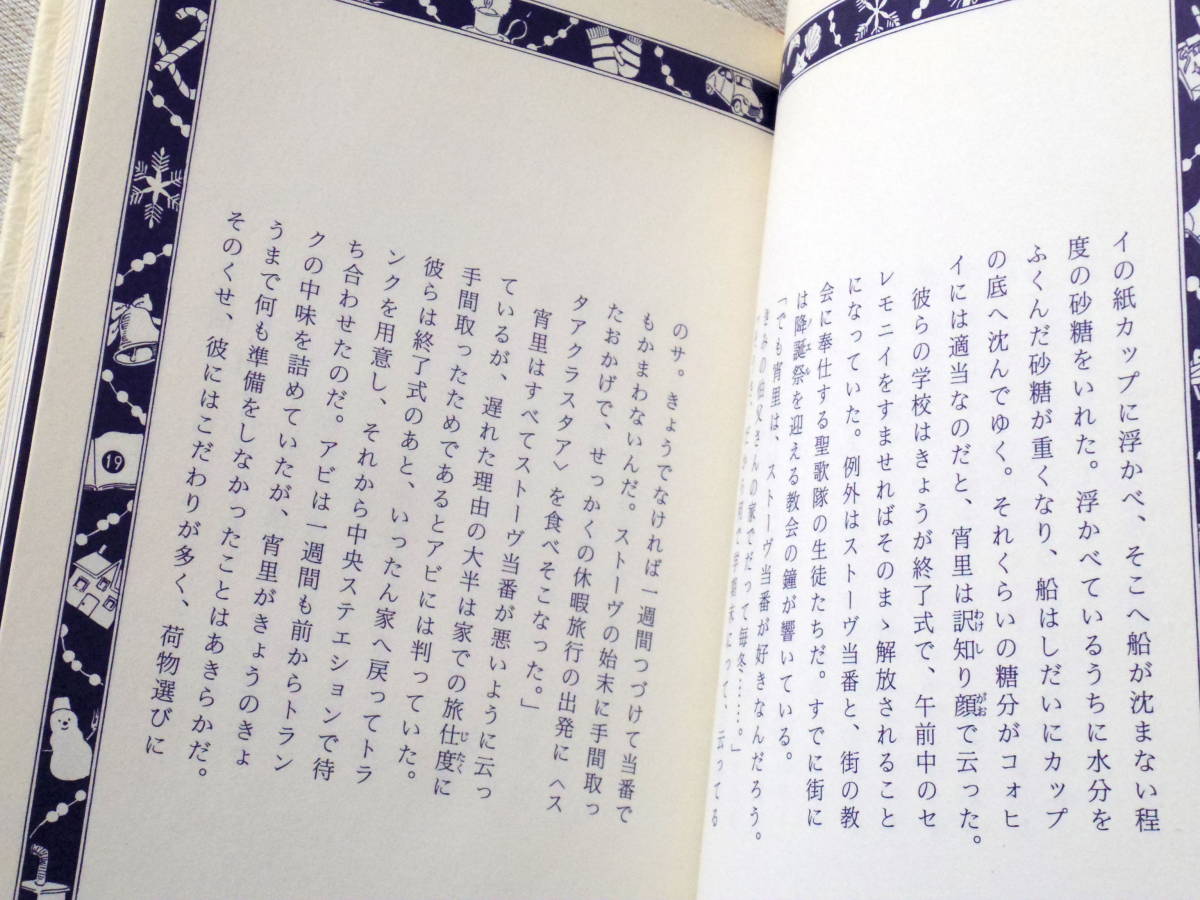 イの紙カップに浮かべ、そこへ船が沈まない程
度の砂糖をいれた。浮かべているうちに水分を
ふくんだ砂糖が重くなり、船はしだいにカップ
の底へ沈んでゆく。それくらいの糖分がコォヒ
イには適当なのだと、宵里は訳知り顔で云った。
わけし
がお
彼らの学校はきょうが終了式で、午前中のセ
レモニイをすませればそのまゝ解放されること
になっていた。例外はストーヴ当番と、街の教
会に奉仕する聖歌隊の生徒たちだ。すでに街に
は降誕祭を迎える教会の鐘が響いている。
ノエル
「でも宵里は、ストーヴ当番が好きなんだろう。
きみの伯父さんの家でだって毎冬……。」
って、云ってる
のサ。きょうでなければ一週間つづけて当番で
もかまわないんだ。ストーヴの始末に手間取っ
たおかげで、せっかくの休暇旅行の出発に〈ス
タアクラスタア〉を食べそこなった。」
宵里はすべてストーヴ当番が悪いように云っ
ているが、遅れた理由の大半は家での旅仕度に
じたく
手間取ったためであるとアビには判っていた。
彼らは終了式のあと、いったん家へ戻ってトラ
ンクを用意し、それから中央ステエションで待
ち合わせたのだ。アビは一週間も前からトラン
クの中味を詰めていたが、宵里がきょうのきょ
うまで何も準備をしなかったことはあきらかだ。
そのくせ、彼にはこだわりが多く、荷物選びに
19